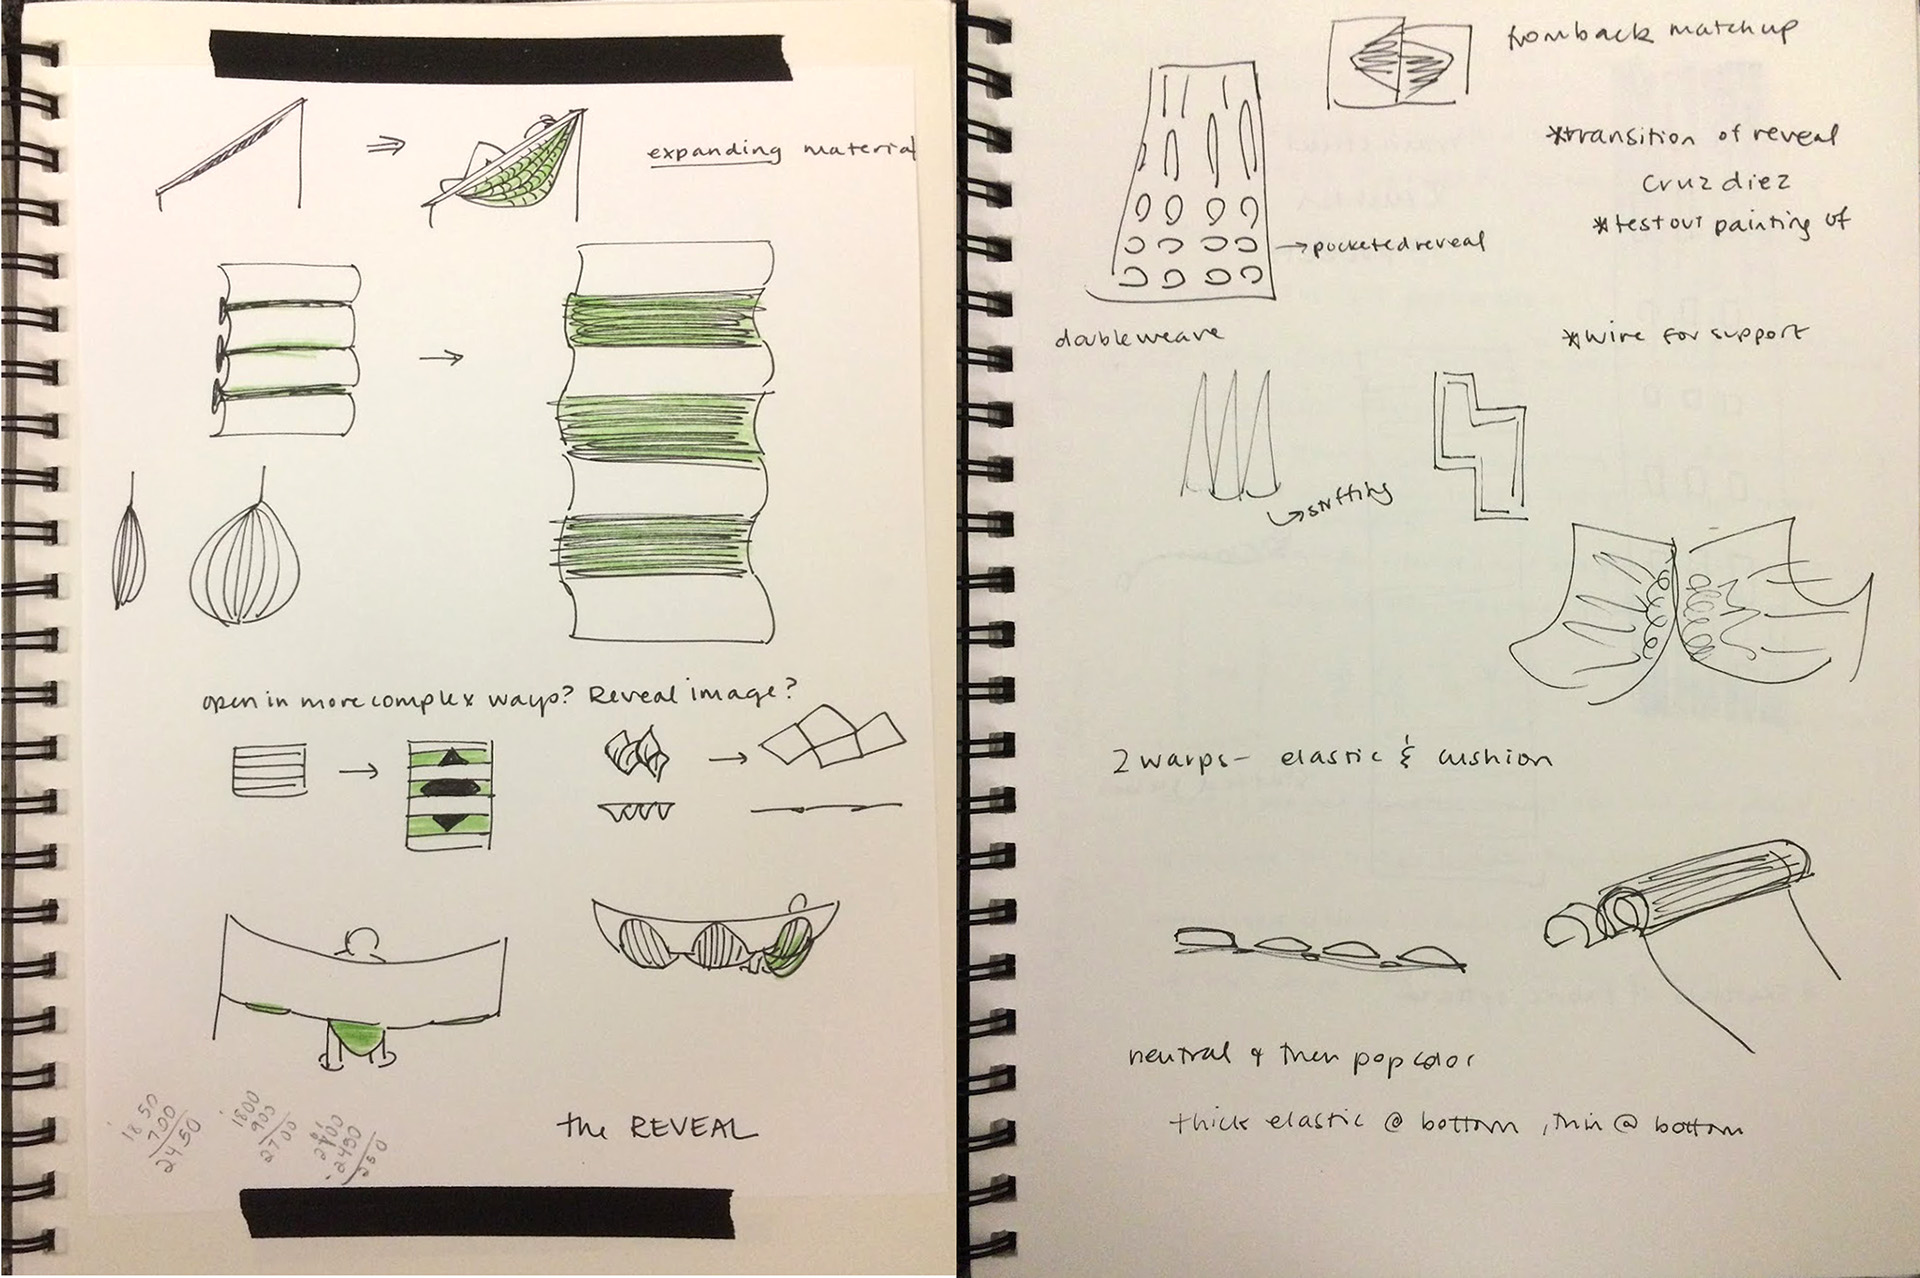 expanding material
open in more complex ways? Reveal image?
the REVEAL
1850
700
2450
1800
900
2700
2700
2450
250
from back matchup
*transition of reveal
cruz diez
*test out painting of
→pocketed reveal
double weave
*wire for support
stuffing
2 warps - elastic & cushion
neutral & then pop color
thick elastic @ bottom, thin @ bottom